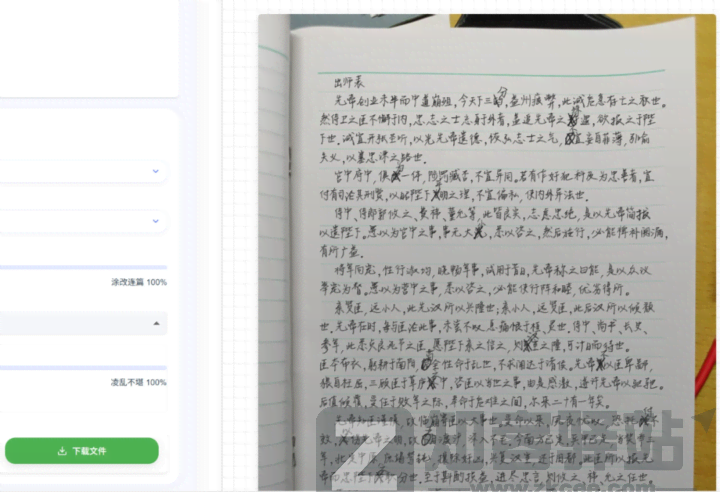 涂改连篇 100%
凌乱不堪 100%
下载文件
出师表
先帝创业未半而中道崩殂,今天下三分,益州疲弊,此诚危急存亡之秋也。
然侍卫之臣不懈于内,忠志之士忘身于外者,盖追先帝之殊遇,欲报之于陛
下也。诚宜开张圣听,以光先帝遗德,恢弘志士之气,宜妄自菲薄,引喻
失义,以塞忠谏之路也。
宫中府中,俱为一体,陟罚臧否,不宜异同。若有作奸犯科及为忠善者,宜
付有司论其刑赏,以昭陛下平明之理,不宜偏私,使内外异法也。
侍中、侍郎郭攸之、费祎、董允等,此皆良实,志虑忠纯,是以先帝简拔
以遗陛下。愚以为宫中之事,事无大小,悉以咨之,然后施行,必能裨补阙漏,
有所广益。
将军向宠,性行淑均,晓畅军事,试用于昔日,先帝称之曰能,是以众议
举宠为督。愚以为营中之事,悉以咨之,必能使行阵和睦,优劣得所。
亲贤臣,远小人,此先汉所以兴隆也;亲小人,远贤臣,此后汉所以倾颓
也。先帝在时,每与臣论此事,未尝不叹息痛恨于桓、灵也。侍中、尚书、长史、
参军,此悉贞良死节之臣,愿陛下亲之信之,之隆,可计日而待也。
臣本布衣,躬耕于南阳,全性命于乱世,不求闻达于诸侯。先帝以臣卑鄙,
猥自枉屈,三顾臣于草庐中,咨臣以当世之事,由是感激,遂许先帝以驱驰。
后值倾覆,受任于败军之际,奉命于危难之间,尔来二十有一年矣。
先帝知臣谨慎,故临崩寄臣以大事也。受命以来,夙夜忧叹,恐
效,以伤先帝之明,故五月渡泸,深入不毛。今南方已定,甲已足,
年,此攘除奸凶,兴复汉室,还于旧都。此臣所以报先
帝而忠陛下职分也。至于斟酌损益,进尽忠言,则攸之、祎、允之任也。
www.zkcde.com